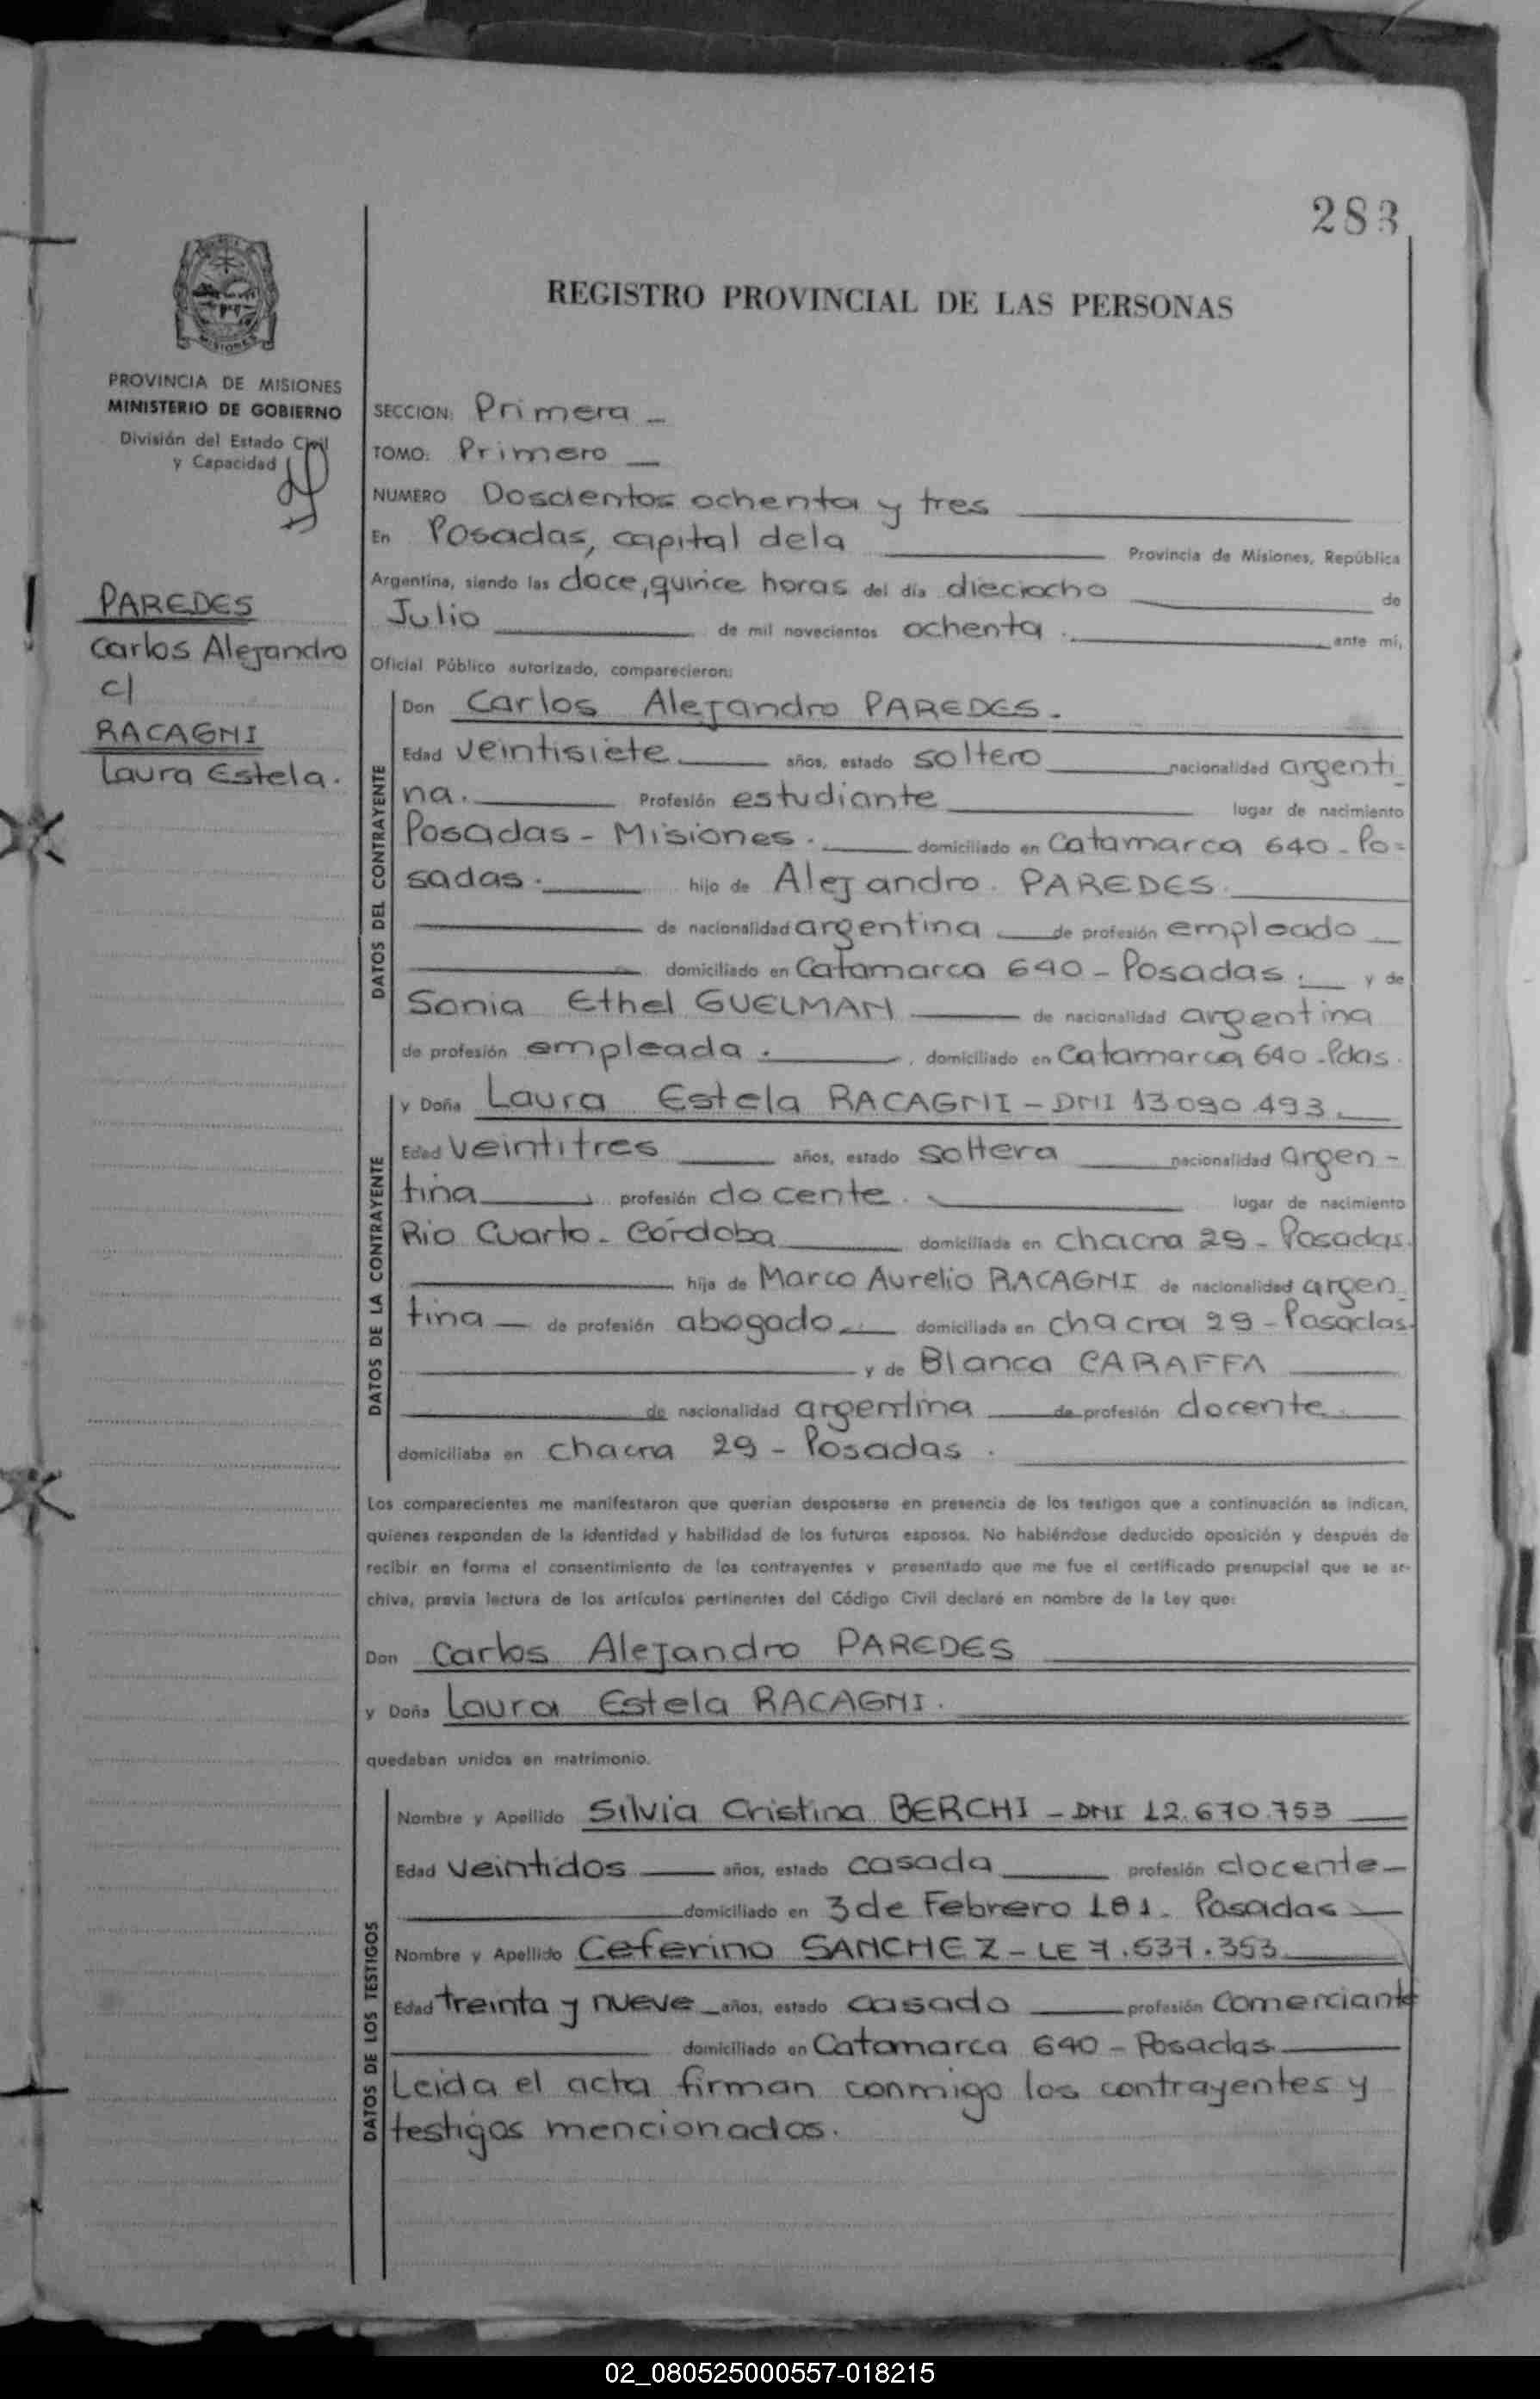 283
REGISTRO PROVINCIAL DE LAS PERSONAS
MISIONES
PROVINCIA DE MISIONES
MINISTERIO DE GOBIERNO
División del Estado Civil
y Capacidad
PAREDES
Carlos Alejandro
c/
RACAGNI
Laura Estela.
SECCION: Primera
TOMO: Primero
NUMERO Doscientos ochenta y tres
En Posadas, capital dela Provincia de Misiones, República
Argentina, siendo las doce, quince horas del día dieciocho de
Julio de mil novecientos ochenta. ante mí,
Oficial Público autorizado, comparecieron:
DATOS DEL CONTRAYENTE
Don Carlos Alejandro PAREDES.
Edad veintisiete años, estado soltero nacionalidad argenti
na. Profesión estudiante lugar de nacimiento
Posadas - Misiones. domiciliado en Catamarca 640 - Po=
sadas. hijo de Alejandro PAREDES.
de nacionalidad argentina de profesión empleado
domiciliado en Catamarca 640 - Posadas. y de
Sonia Ethel GUELMAN de nacionalidad argentina
de profesión empleada. domiciliado en Catamarca 640 - Pdas.
DATOS DE LA CONTRAYENTE
y Doña Laura Estela RACAGNI - DNI 13.090.493
Edad veintitres años, estado soltera nacionalidad argen -
tina profesión docente. lugar de nacimiento
Rio Cuarto - Córdoba domiciliada en chacra 29 - Posadas.
hija de Marco Aurelio RACAGNI de nacionalidad argen
tina de profesión abogado domiciliada en chacra 29 - Posadas.
y de Blanca CARAFFA
de nacionalidad argentina de profesión docente
domiciliaba en chacra 29 - Posadas.
Los comparecientes me manifestaron que querían desposarse en presencia de los testigos que a continuación se indican,
quienes responden de la identidad y habilidad de los futuros esposos. No habiéndose deducido oposición y después de
recibir en forma el consentimiento de los contrayentes y presentado que me fue el certificado prenupcial que se ar-
chiva, previa lectura de los artículos pertinentes del Código Civil declaré en nombre de la Ley que:
Don Carlos Alejandro PAREDES
y Doña Laura Estela RACAGNI.
quedaban unidos en matrimonio.
DATOS DE LOS TESTIGOS
Nombre y Apellido Silvia Cristina BERCHI - DNI 12.670.753
Edad veintidos años, estado casada profesión docente
domiciliado en 3 de Febrero 181 - Posadas
Nombre y Apellido Ceferino SANCHEZ - LE 7.537.353
Edad treinta y nueve años, estado casado profesión comerciante
domiciliado en Catamarca 640 - Posadas
Leida el acta firman conmigo los contrayentes y
testigos mencionados.
02_080525000557-018215